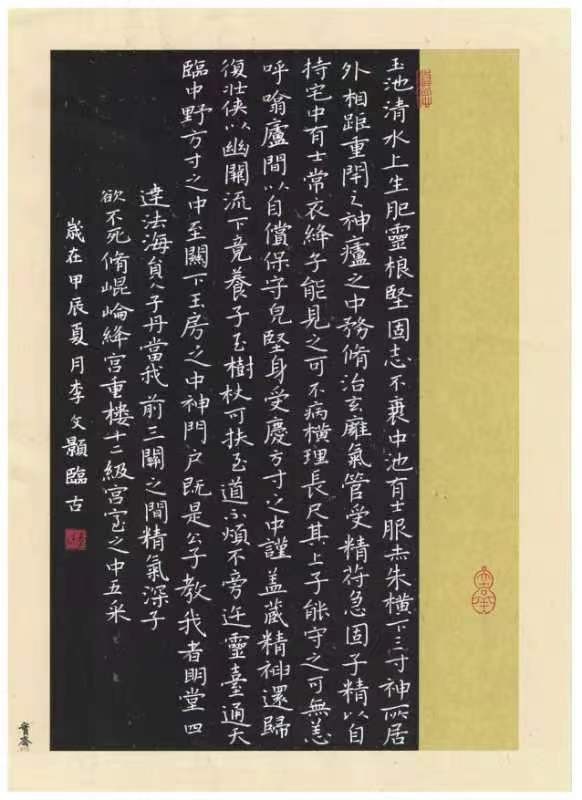 玉池清水上生肥靈根堅固志不衰中池有士服赤朱橫下三寸神所居
外相距重閇之神廬之中務脩治玄癕氣管受精符急固子精以自
持宅中有士常衣絳子能見之可不病橫理長尺其上子能守之可無恙
呼噏廬間以自償保守皃堅身受慶方寸之中謹盖藏精神還歸
復壯俠以幽闕流下竟養子玉樹杖可扶至道不煩不旁迕靈臺通天
臨中野方寸之中至關下玉房之中神門户既是公子教我者明堂四
達法海員人子丹當我前三關之間精氣深子
欲不死脩崐崘絳宮重樓十二級宮室之中五采
歲在甲辰夏月李文顥臨古